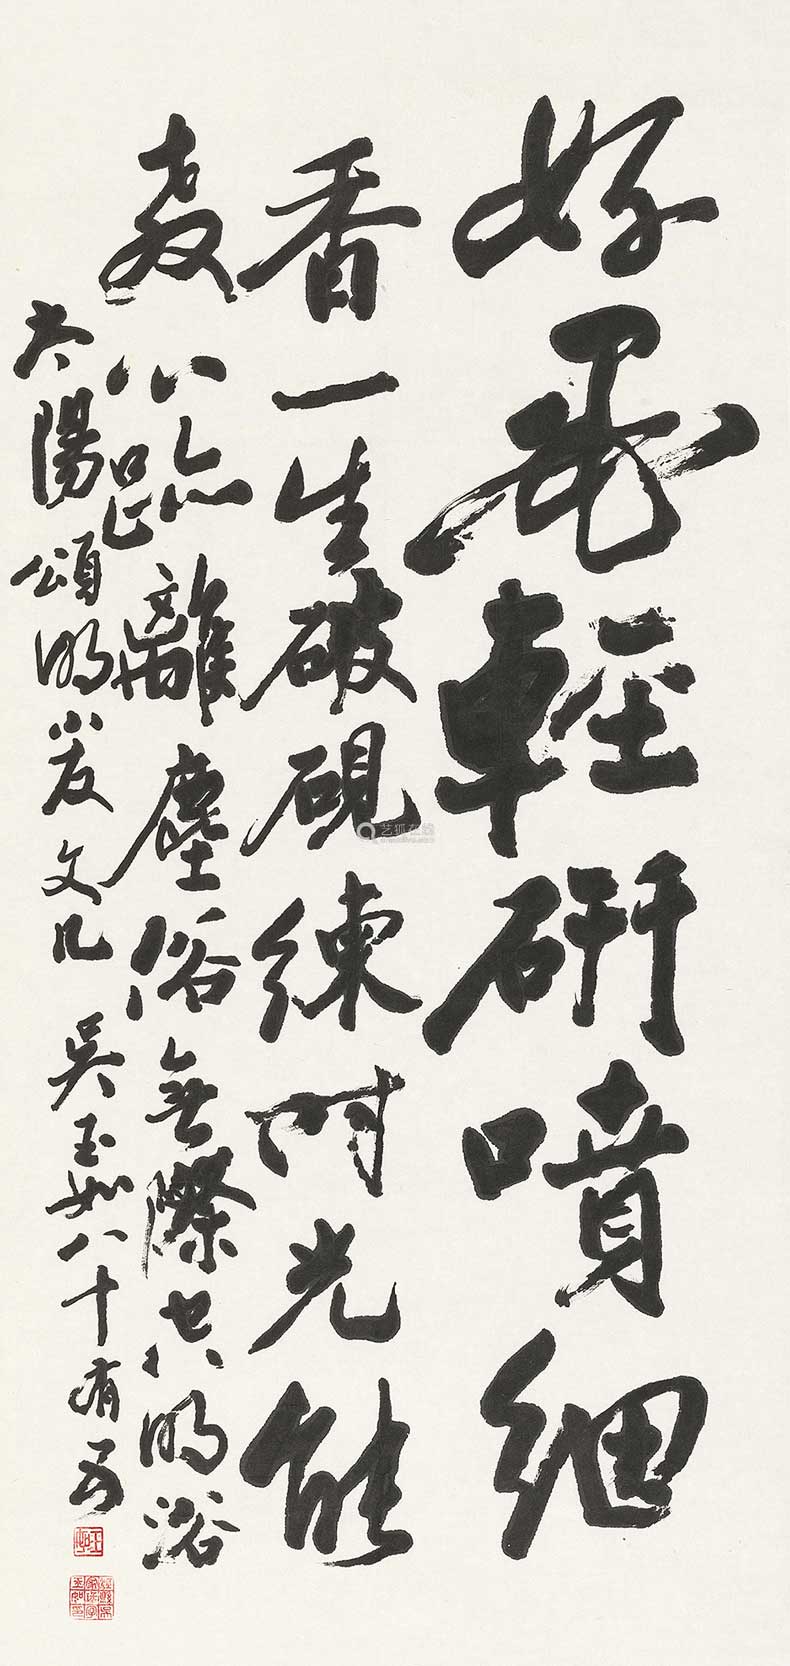 好墨輕研噴細
香一生破硯練时光能
教心跡離塵俗無際空明浴
太陽 頌明小友文几 吴玉如八十有五
艺狐在线